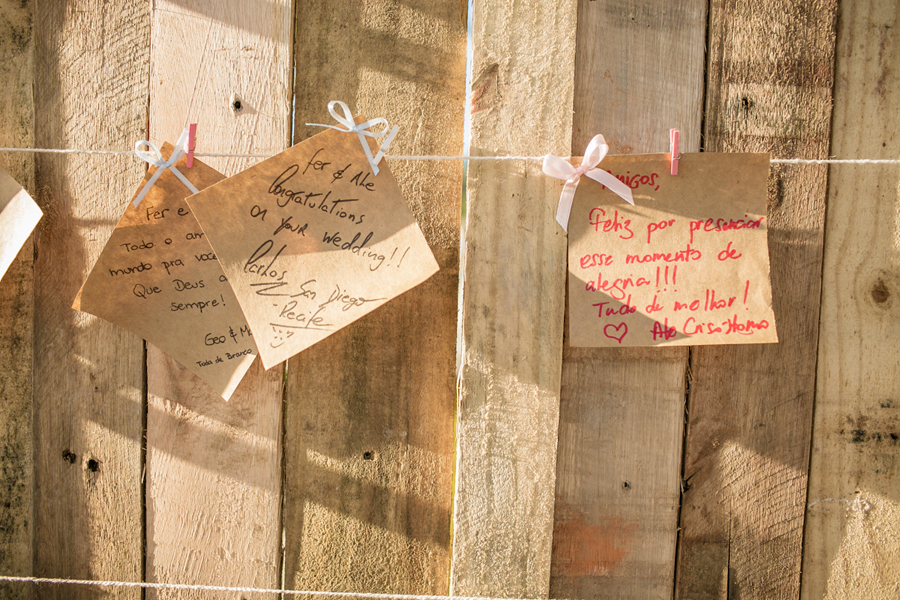 Fer e
Todo o am
mundo pra você
Que Deus a
sempre!
Geo & M
Toda de Branco
Fer & Ale
Congratulations
on your wedding!!
Carlos
San Diego
-Recife
Amigos,
Feliz por presenciar
esse momento de
alegria!!!
Tudo de melhor!
Ale